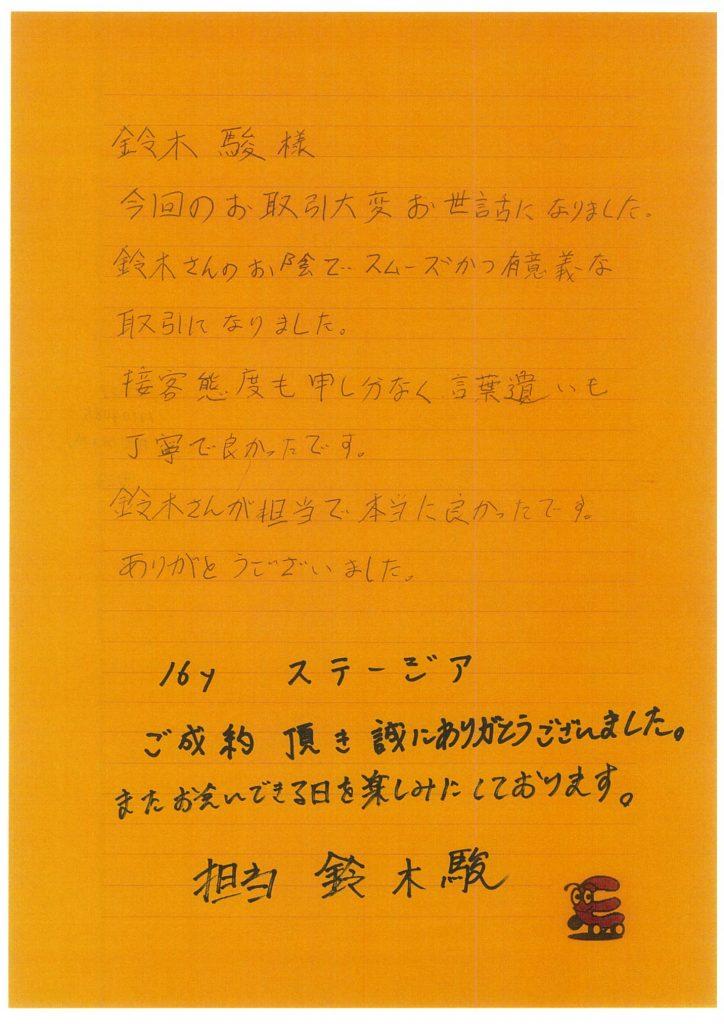 鈴木 駿 様
今回のお取引大変お世話になりました。
鈴木さんのお陰でスムーズかつ有意義な
取引になりました。
接客態度も申し分なく言葉遣いも
丁寧で良かったです。
鈴木さんが担当で本当に良かったです。
ありがとうございました。
16y ステージア
ご成約 頂き誠にありがとうございました。
またお会いできる日を楽しみにしております。
担当 鈴木駿